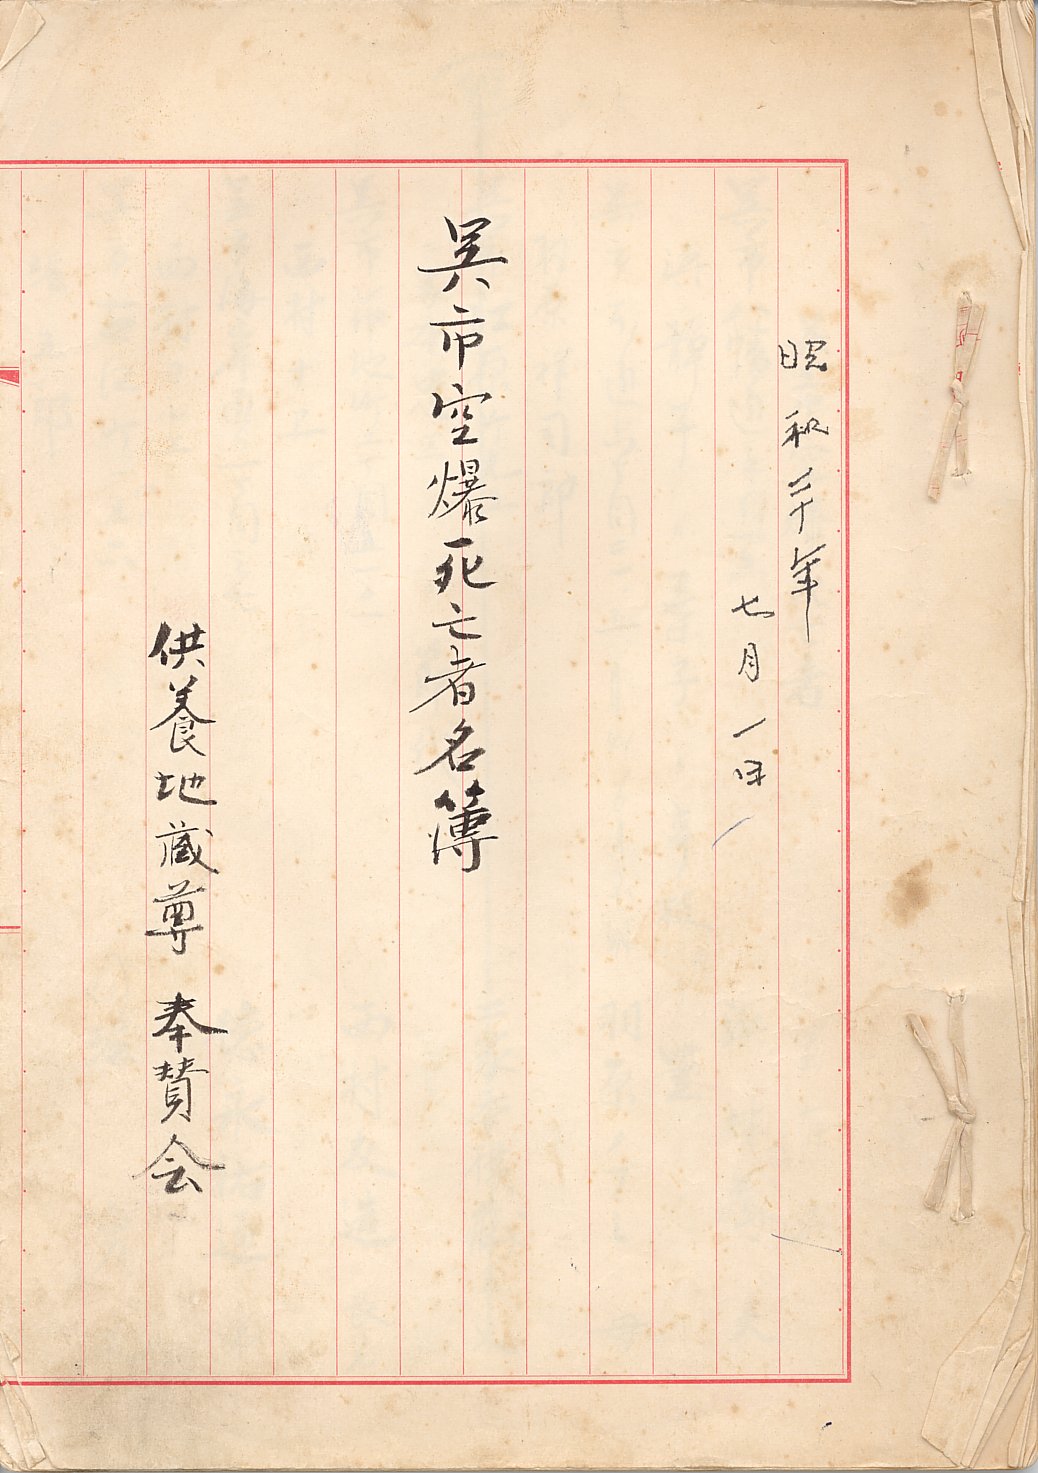 昭和二十年
七月一日
呉市空爆死亡者名簿
供養地蔵尊 奉賛会